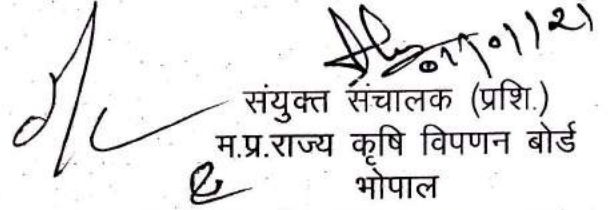 संयुक्त संचालक (प्रशि.)
म.प्र.राज्य कृषि विपणन बोर्ड
भोपाल